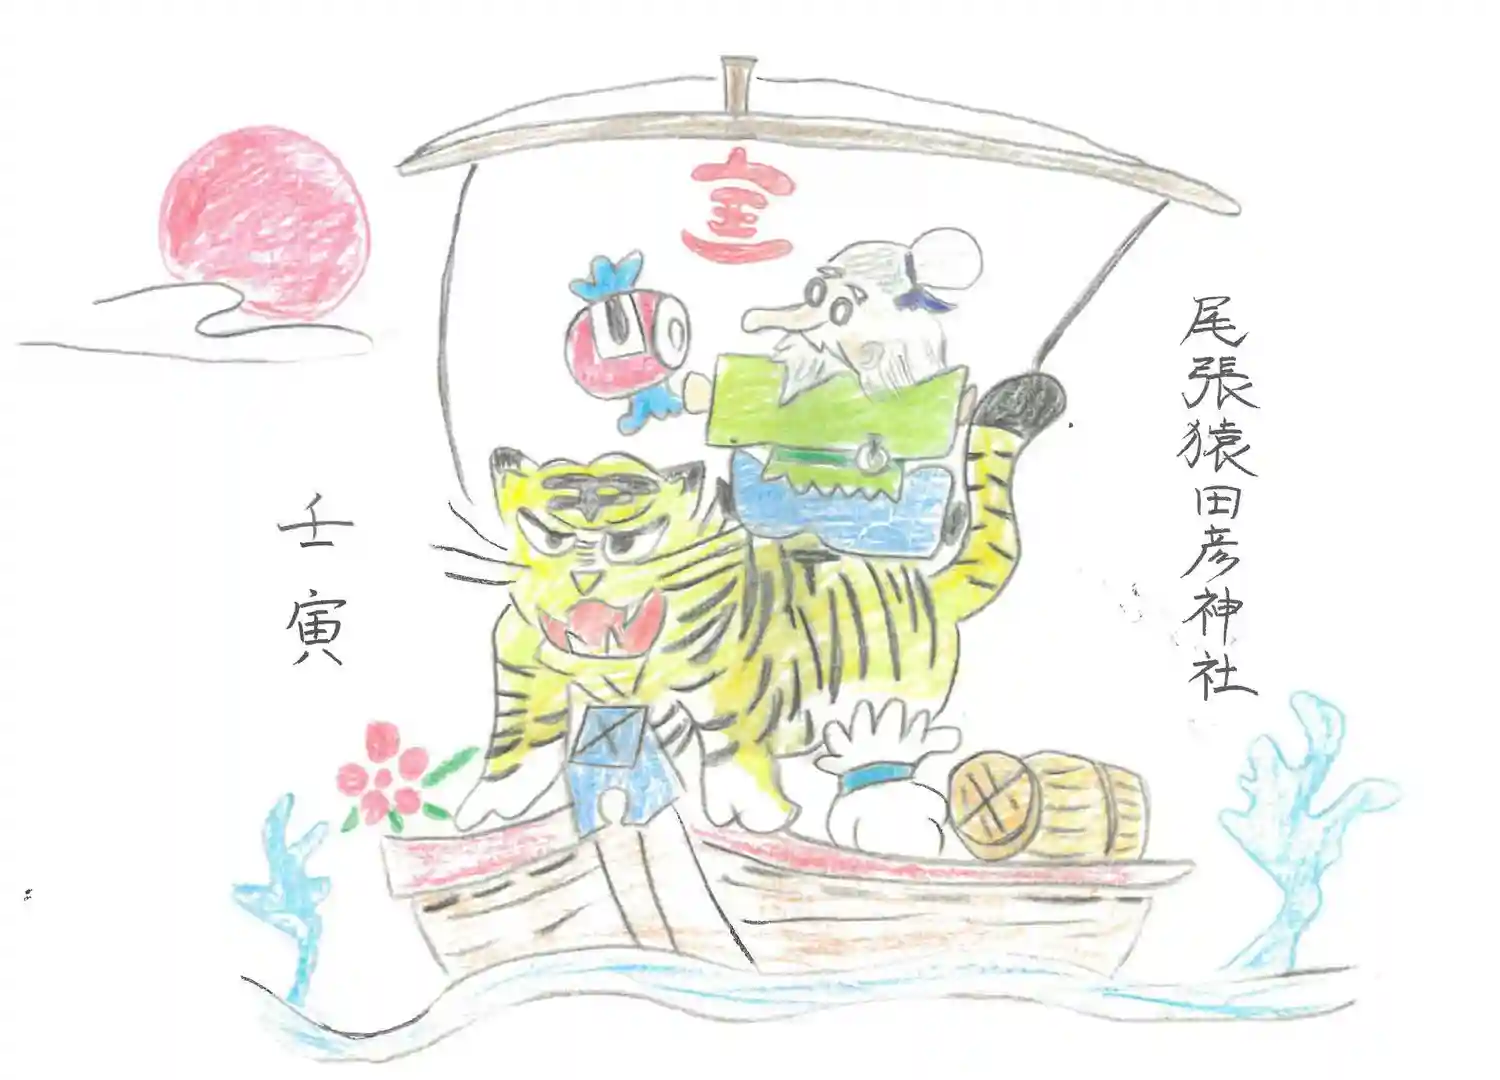 尾張猿田彦神社
壬寅